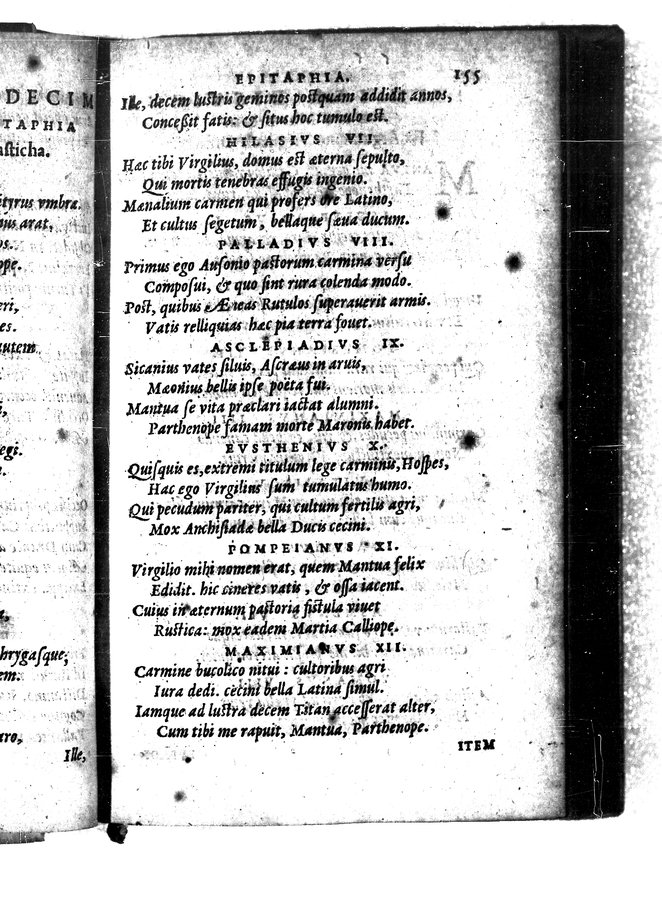 DECIM
TAPHIA
asticha.
ityrus vmbra.
arat,
os.
ope.
eri,
es.
autem
egi.
hrygasque;
em.
ero,
Ille,
EPITAPHIA. 155
Ille, decem lustris geminos postquam addidit annos,
Conceßit fatis: & situs hoc tumulo est.
HILASIVS VII.
Hæc tibi Virgilius, domus est æterna sepulto,
Qui mortis tenebras effugis ingenio.
Mænalium carmen qui profers ore Latino,
Et cultus segetum, bellaque sæua ducum.
PALLADIVS VIII.
Primus ego Ausonio pastorum carmina versu
Composui, & quo sint rura colenda modo.
Post, quibus Æneas Rutulos superauerit armis.
Vatis relliquias hæc pia terra fouet.
ASCLEPIADIVS IX.
Sicanius vates siluis, Ascræus in aruis,
Mæonius bellis ipse poëta fui.
Mantua se vita præclari iactat alumni.
Parthenope famam morte Maronis habet.
EVSTHENIVS X.
Quisquis es, extremi titulum lege carminis, Hospes,
Hac ego Virgilius sum tumulatus humo.
Qui pecudum pariter, qui cultum fertilis agri,
Mox Anchisiadæ bella Ducis cecini.
POMPEIANVS XI.
Virgilio mihi nomen erat, quem Mantua felix
Edidit. hic cineres vatis, & ossa iacent.
Cuius in æternum pastoria fistula viuet
Rustica: mox eadem Martia Calliope.
MAXIMIANVS XII.
Carmine bucolico nitui: cultoribus agri
Iura dedi. cecini bella Latina simul.
Iamque ad lustra decem Titan accesserat alter,
Cum tibi me rapuit, Mantua, Parthenope.
ITEM